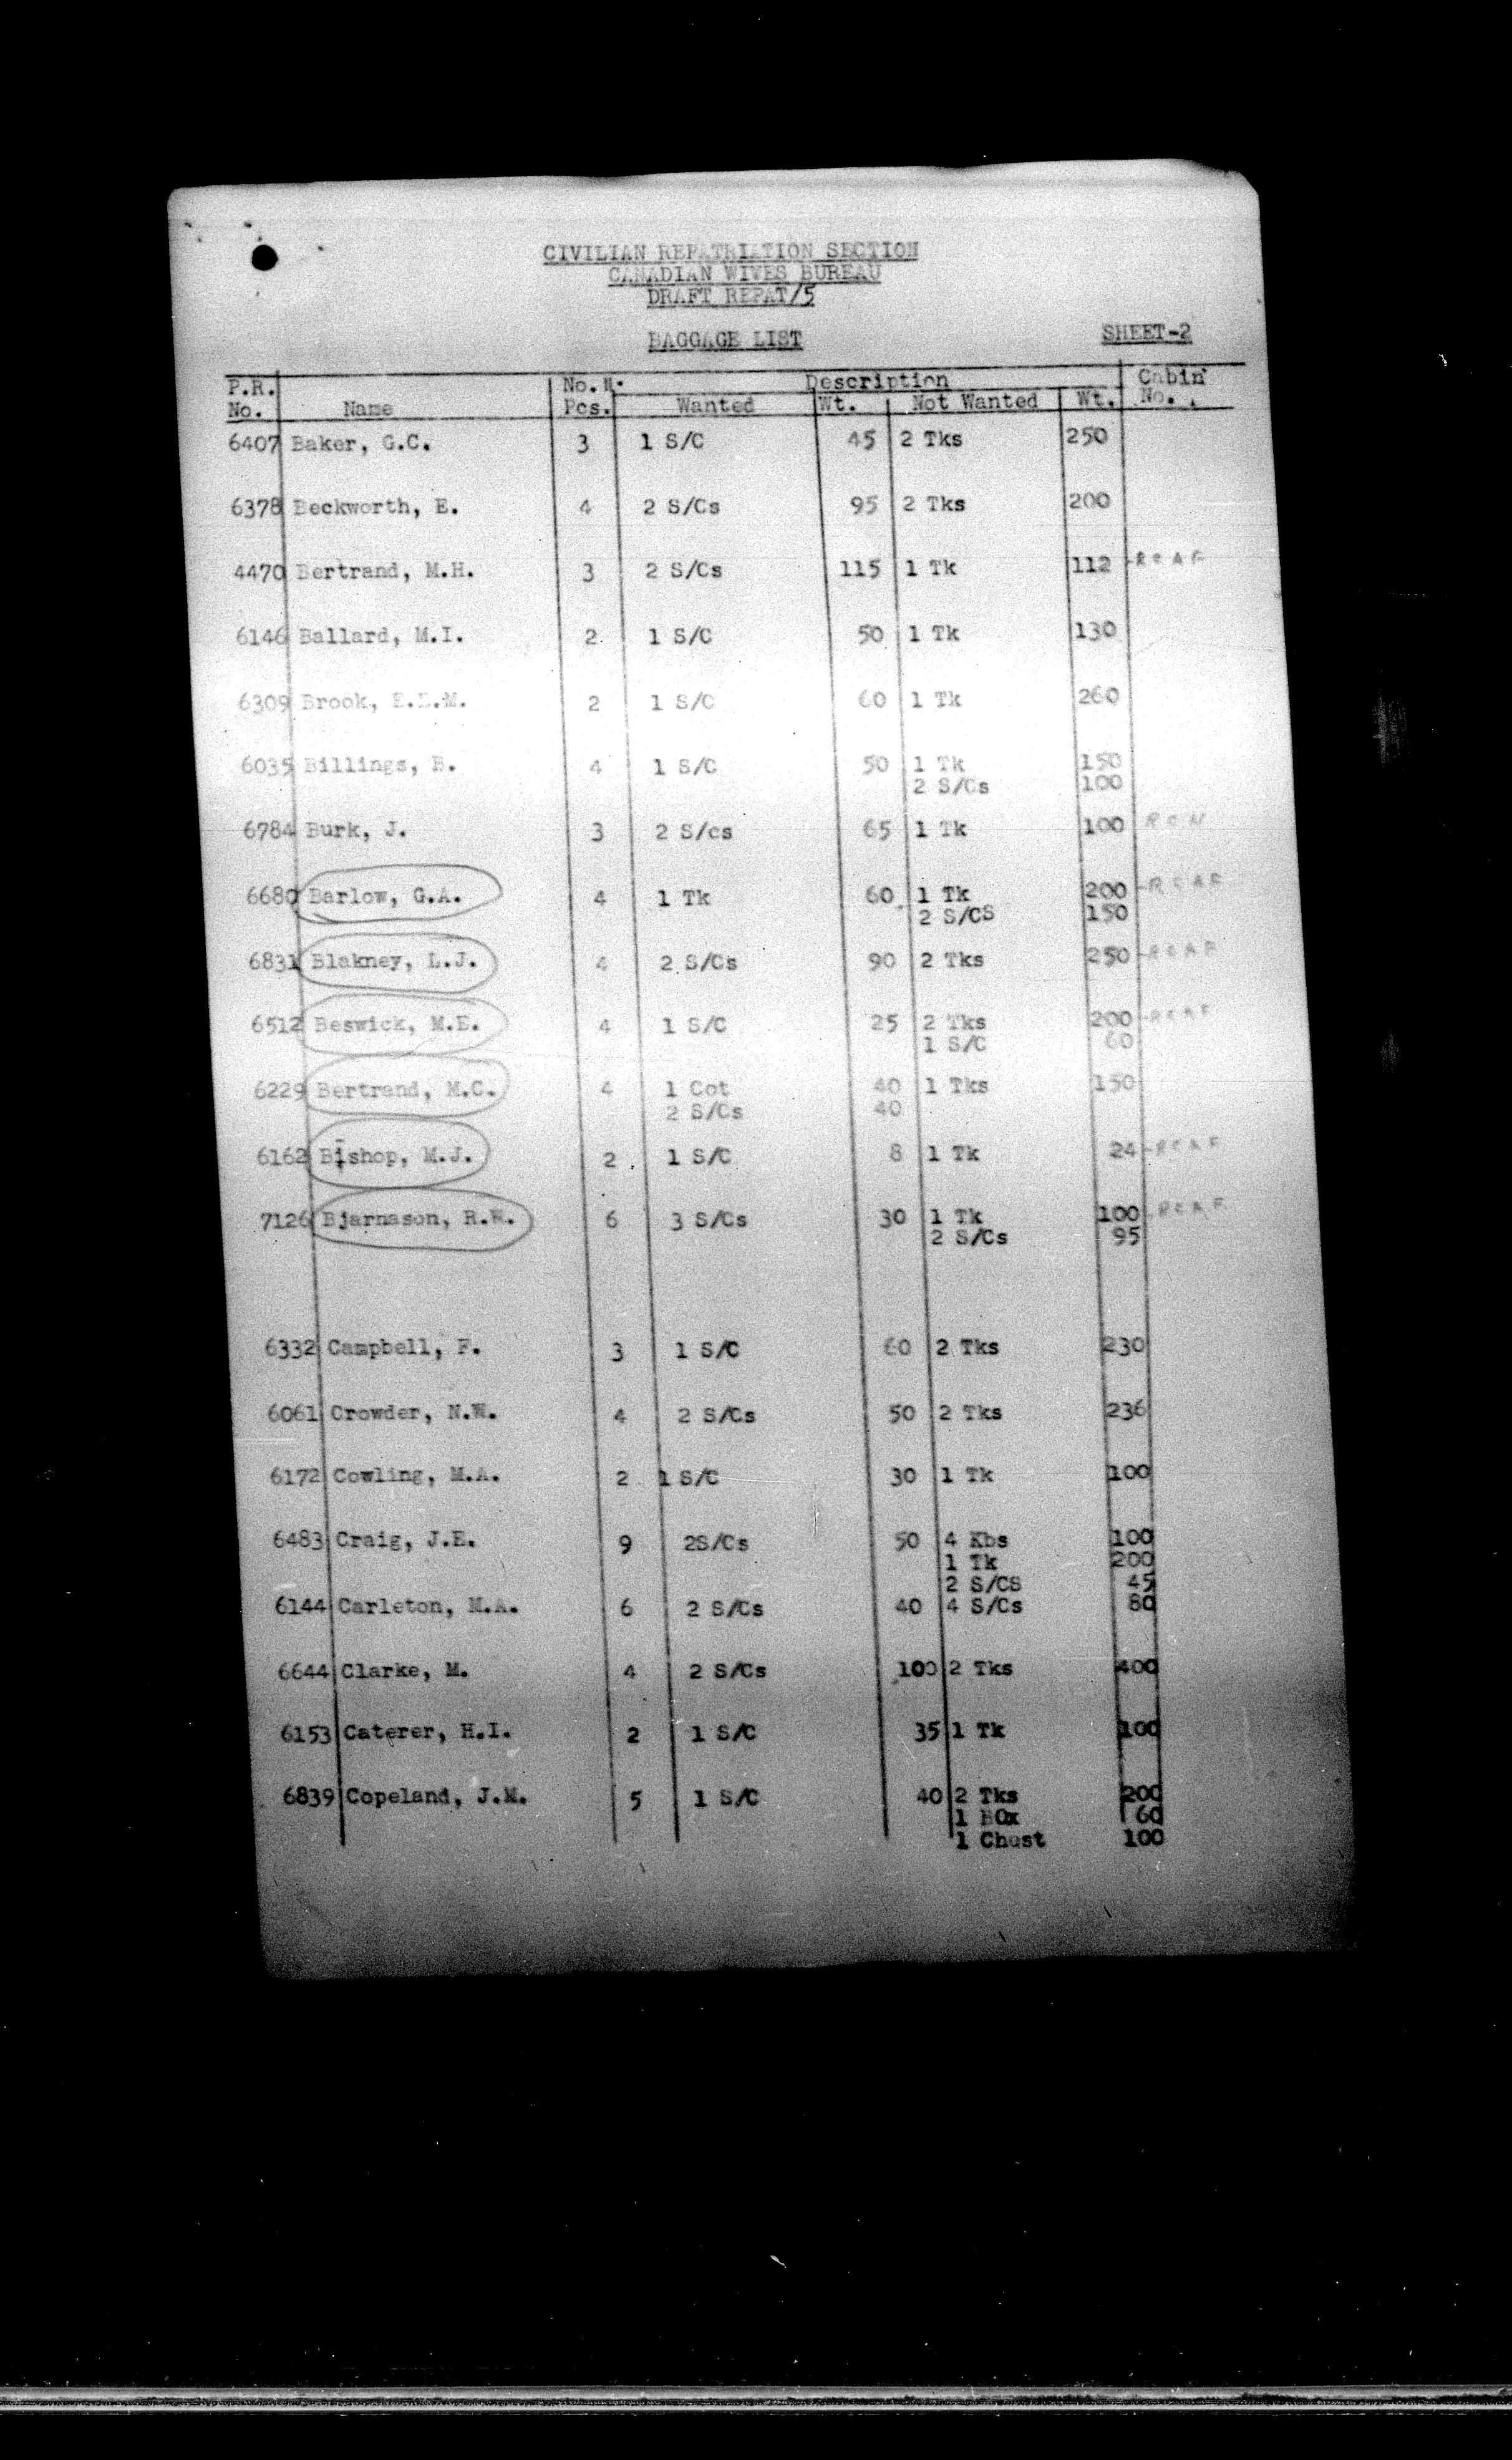 CIVILIAN REPATRIATION SECTION
CANADIAN WIVES BUREAU
DRAFT REPAT/5
BAGGAGE LIST SHEET-2
P.R. No. Description Cabin
No. Name Pcs. Wanted Wt. Not Wanted Wt. No.
6407 Baker, G.C. 3 1 S/C 45 2 Tks 250
6378 Beckworth, E. 4 2 S/Cs 95 2 Tks 200
4470 Bertrand, M.H. 3 2 S/Cs 115 1 Tk 112 -RCAF
6146 Ballard, M.I. 2 1 S/C 50 1 Tk 130
6309 Brook, 2 1 S/C 60 1 Tk 260
6035 Billings, 4 1 S/C 50 1 Tk 150
2 S/Cs 100
6784 Burk, J. 3 2 S/cs 65 1 Tk 100 RCN
6680 Barlow, G.A. 4 1 Tk 60 1 Tk 200 -RCAF
2 S/CS 150
6831 Blakney, L.J. 4 2 S/Cs 90 2 Tks 250 -RCAF
6512 Beswick, M.E. 4 1 S/C 25 2 Tks 200 -RCAF
1 S/C 60
6229 Bertrand, M.C. 4 1 Cot 40 1 Tks 150
2 S/Cs 40
6162 Bishop, M.J. 2 1 S/C 8 1 Tk 24 -RCAF
7126 Bjarnason, R.W. 6 3 S/Cs 30 1 Tk 100 -RCAF
2 S/Cs 95
6332 Campbell, F. 3 1 S/C 60 2 Tks 230
6061 Crowder, N.W. 4 2 S/Cs 50 2 Tks 236
6172 Cowling, M.A. 2 1 S/C 30 1 Tk 100
6483 Craig, J.E. 9 2S/Cs 50 4 Kbs 100
1 Tk 200
2 S/CS 45
6144 Carleton, M.A. 6 2 S/Cs 40 4 S/Cs 80
6644 Clarke, M. 4 2 S/Cs 100 2 Tks 400
6153 Caterer, H.I. 2 1 S/C 35 1 Tk 100
6839 Copeland, J.M. 5 1 S/C 40 2 Tks 200
1 BOx 60
1 Chest 100